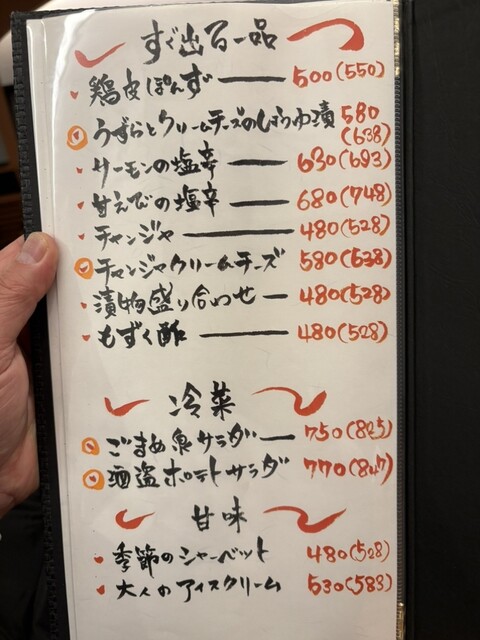 すぐ出る一品
鶏皮ぽんず 500(550)
うずらとクリームチーズのしょうゆ漬 580(638)
サーモンの塩辛 630(693)
甘えびの塩辛 680(748)
チャンジャ 480(528)
チャンジャクリームチーズ 580(638)
漬物盛り合わせ 480(528)
もずく酢 480(528)
冷菜
ごまめ泉サラダ 750(825)
酒盗ポテトサラダ 770(847)
甘味
季節のシャーベット 480(528)
大人のアイスクリーム 530(583)